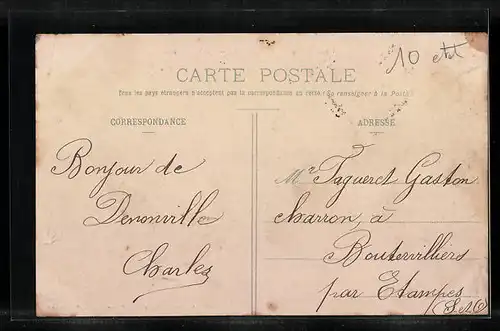 10
CARTE POSTALE
Tous les pays étrangers n'acceptent pas la correspondance au verso (Se renseigner à la Poste)
CORRESPONDANCE
ADRESSE
Bonjour de
Denonville
Charles
Mr Tagueret Gaston
charron, à
Boutervilliers
par Etampes
(S.&O)